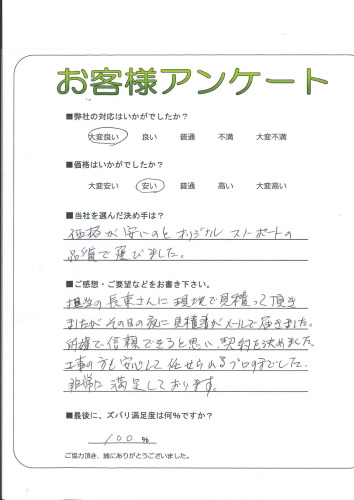 お客様アンケート
■弊社の対応はいかがでしたか？
大変良い 良い 普通 不満 大変不満
■価格はいかがでしたか？
大変安い 安い 普通 高い 大変高い
■当社を選んだ決め手は？
価格が安いのとオリジナルストーボードの
品質で選びました。
■ご感想・ご要望などをお書き下さい。
担当の長束さんに現地で見積って頂き
ましたがその日の夜に見積書がメールで届きました。
明確で信頼できると思い、契約を決めました。
工事の方も安心して任せられるプロの方でした。
非常に満足しております。
■最後に、ズバリ満足度は何％ですか？
100 %
ご協力頂き、誠にありがとうございました。